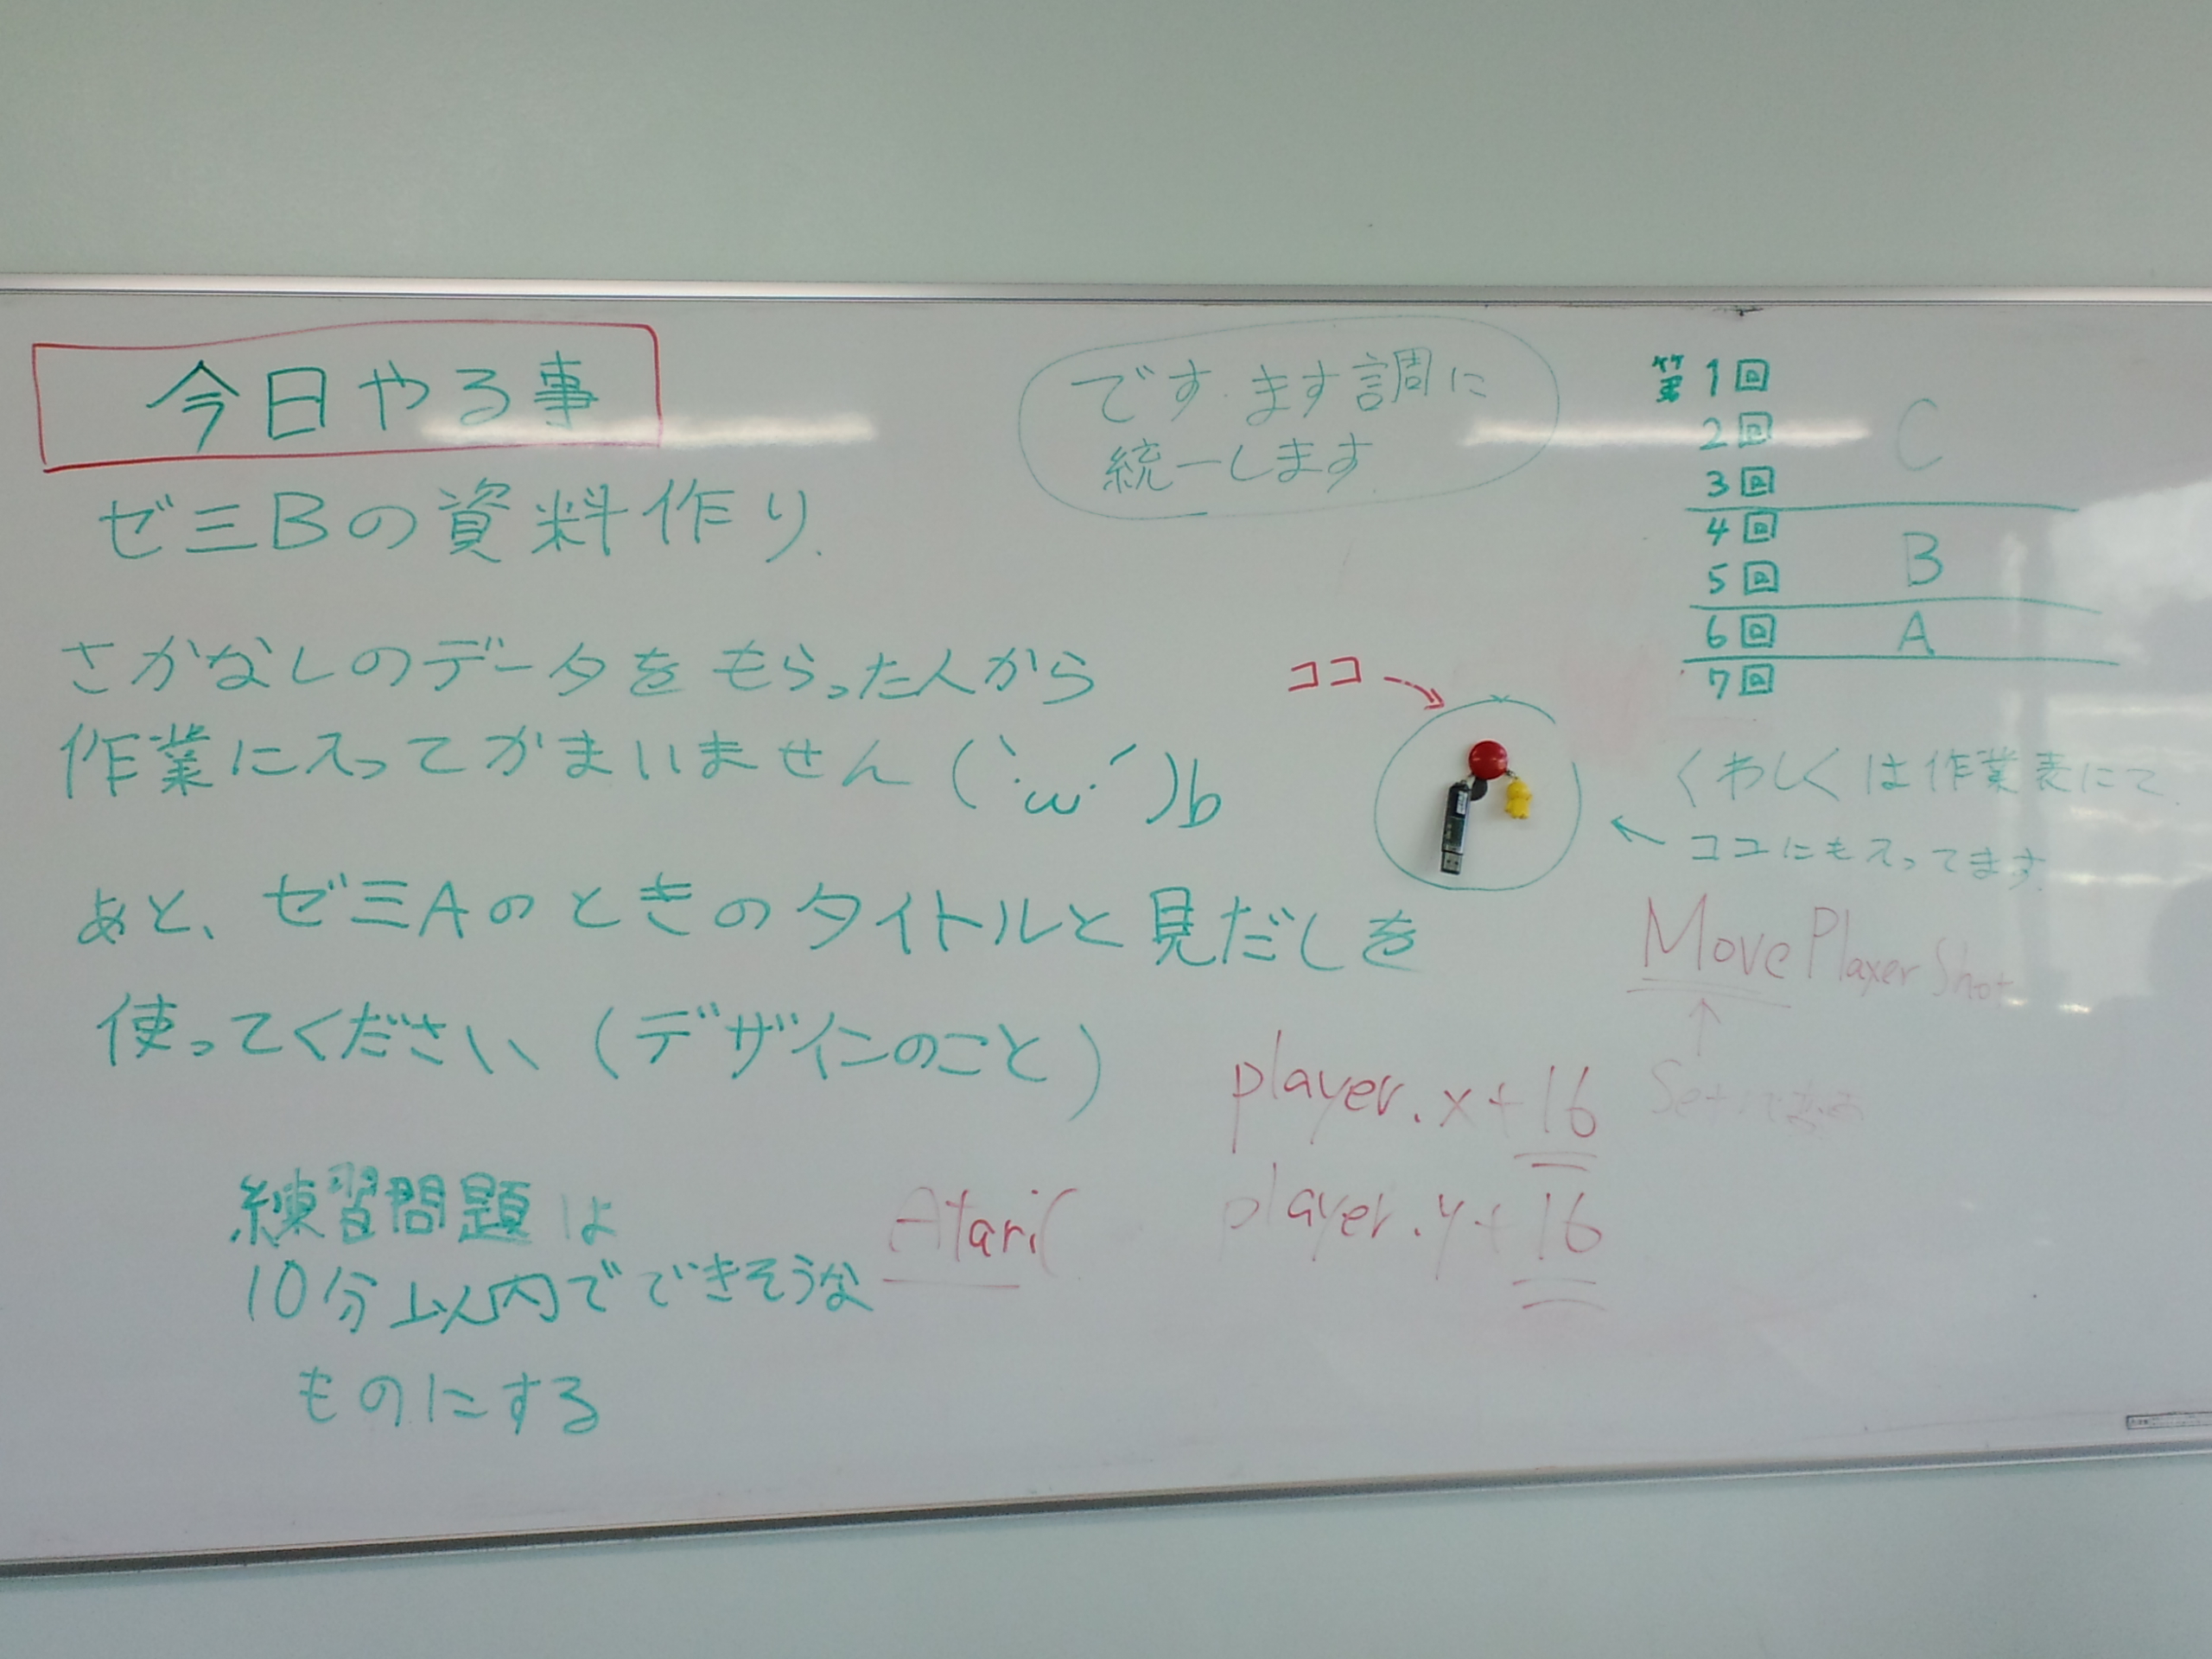 今日やる事
ゼミBの資料作り.
さかなしのデータをもらった人から
作業に入ってかまいません(`･ω･´)b
あと、ゼミAのときのタイトルと見だしを
使ってください(デザインのこと)
練習問題は
10分以内でできそうな
ものにする
です.ます調に
統一します
第1回
2回
3回
C
4回
5回
B
6回
A
7回
ココ
くわしくは作業表にて.
ココにも入ってます.
MovePlayerShot
player.x+16
player.y+16
Atari(